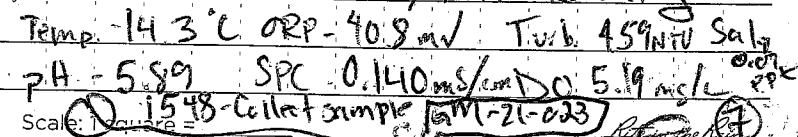 Temp - 14.3 °C ORP - 40.8 mV Turb. 459 NTU Sal
pH - 5.89 SPC - 0.140 ms/cm DO 5.19 mg/L 0.07 ppt
1548 - Collect sample GM-21-023
Scale: 1 square =